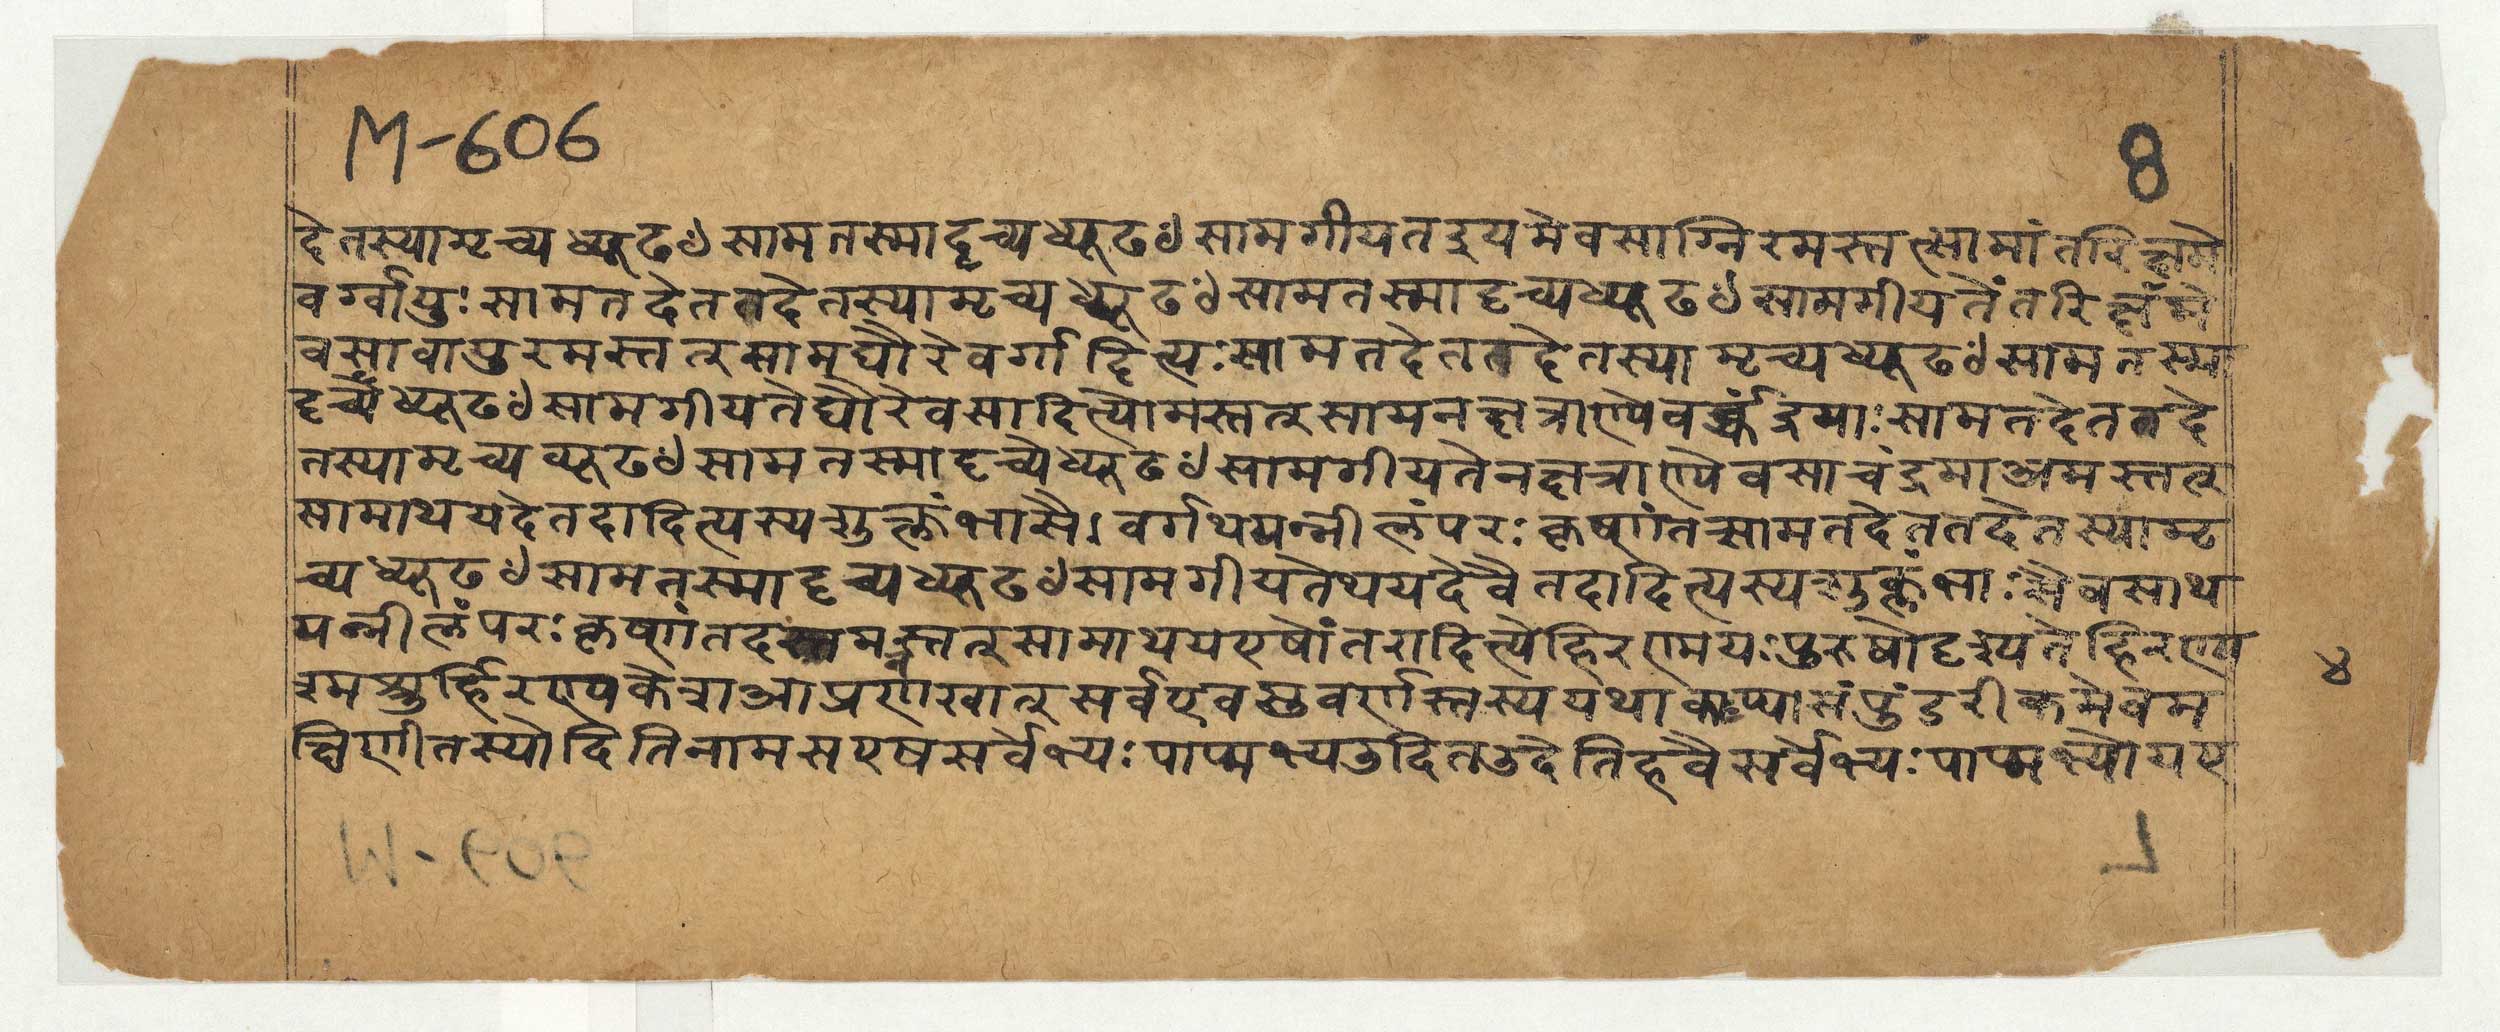 M-606
8
देतस्यामृच्यध्यूढꣳसामतस्मादृच्यध्यूढꣳसामगीयतइयमेवसाग्निरमस्तत्सामांतरिक्षमे
वर्ग्वायुःसामतदेततदेतस्यामृच्यध्यूढꣳसामतस्मादृच्यध्यूढꣳसामगीयतेंतरिक्षमे
वसावायुरमस्तत्सामद्यौरेवर्गादित्यःसामतदेततदेतस्यामृच्यध्यूढꣳसामतस्मा
दृच्यध्यूढꣳसामगीयतेद्यौरेवसादित्योमस्तत्सामनक्षत्राण्येवर्क्चंद्रमाःसामतदेततदे
तस्यामृच्यध्यूढꣳसामतस्मादृच्यध्यूढꣳसामगीयतेनक्षत्राण्येवसाचंद्रमाअमस्तत्
सामाथयदेतदादित्यस्यशुक्लंभासै।वर्गथयन्नीलंपरःकृष्णंतत्सामतदेततदेतस्यामृ
च्यध्यूढꣳसामतस्मादृच्यध्यूढꣳसामगीयतेथयदेवैतदादित्यस्यशुक्लंभाःसैवसाथ
यन्नीलंपरःकृष्णंतदमस्तत्सामाथयएषोंतरादित्येहिरण्मयःपुरुषोदृश्यतेहिरण्य
श्मश्रुर्हिरण्यकेशआप्रणखात्सर्वएवसुवर्णस्तस्ययथाकप्यासंपुंडरीकमेवम
क्षिणीतस्योदितिनामसएषसर्वेभ्यःपाप्मभ्यउदितउदेतिहवैसर्वेभ्यःपाप्मभ्योयए
४